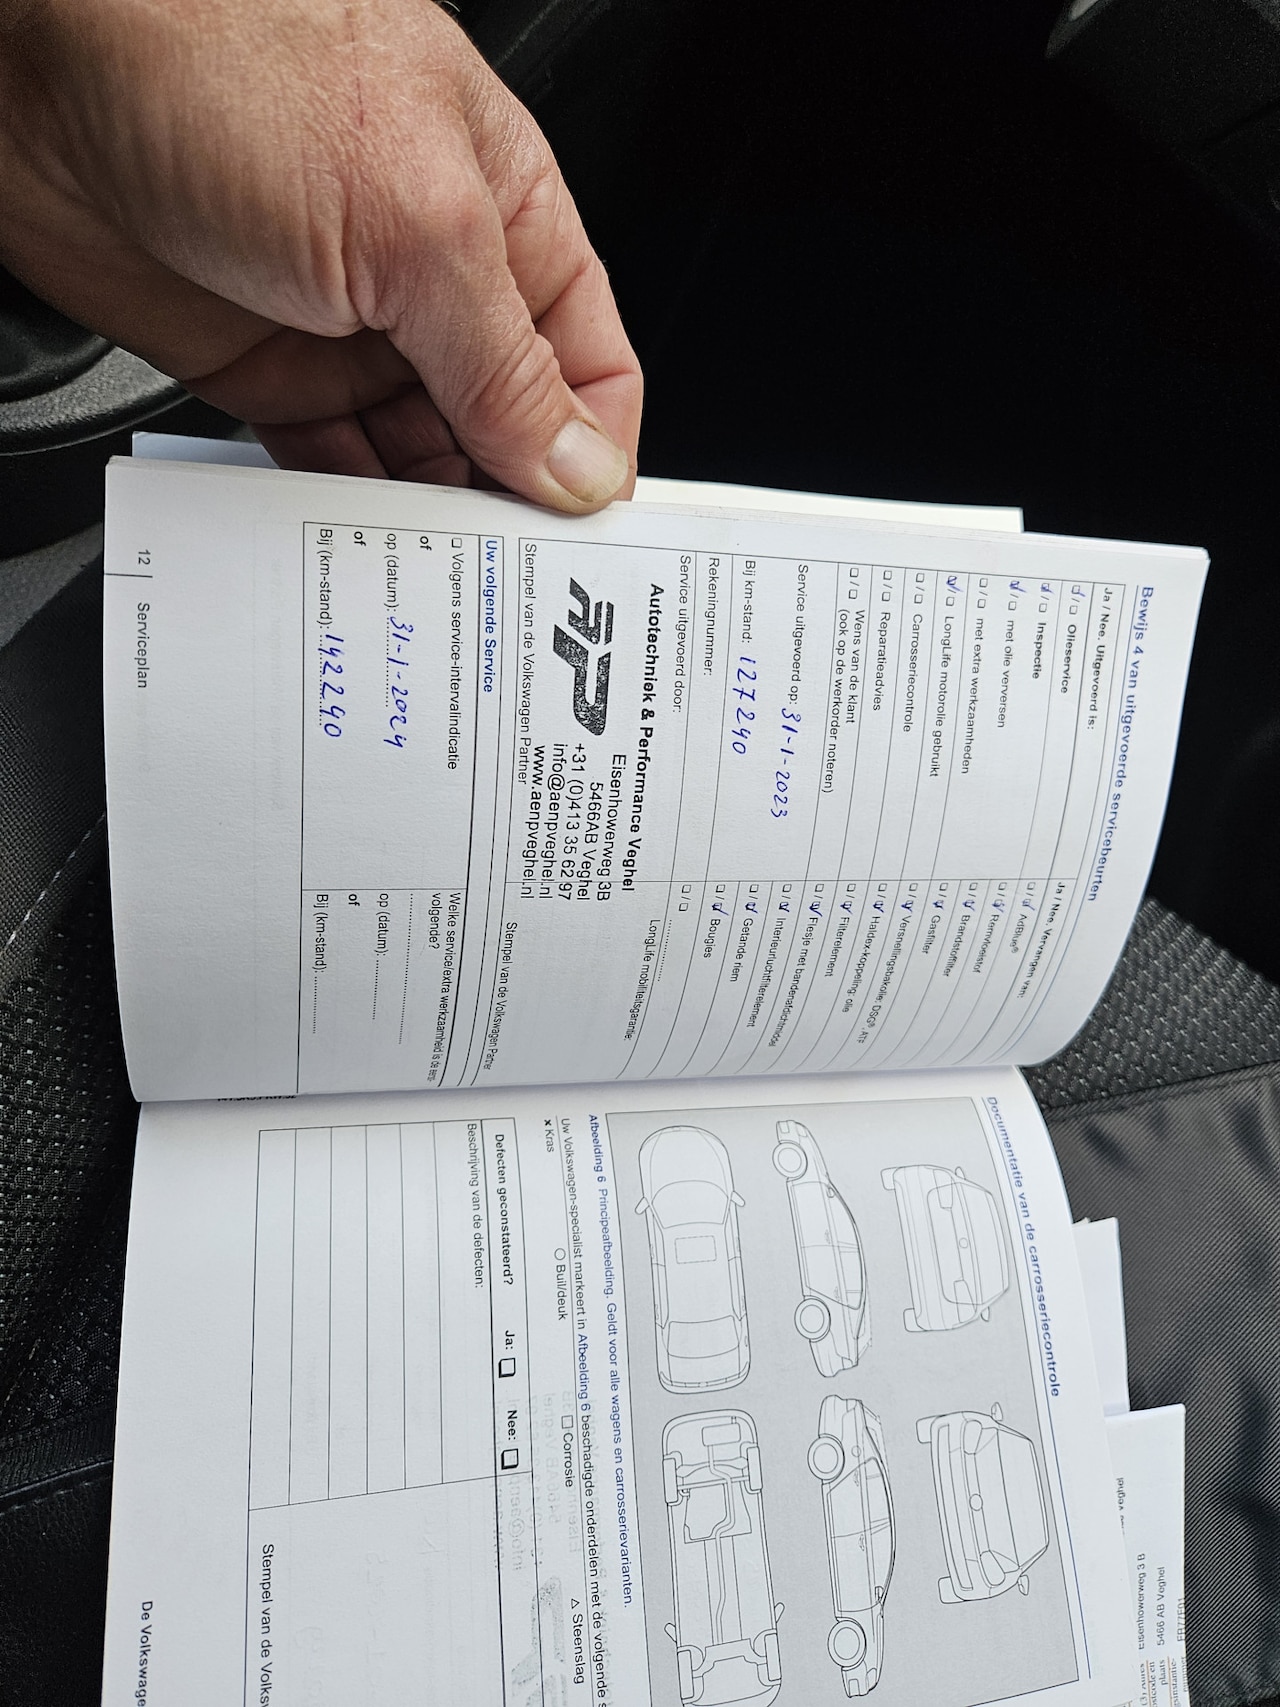 Bewijs 4 van uitgevoerde servicebeurten
Ja / Nee. Uitgevoerd is:
☑/☐ Olieservice
☑/☐ Inspectie
☑/☐ met olie verversen
☐/☐ met extra werkzaamheden
☑/☐ LongLife motorolie gebruikt
☐/☐ Carrosseriecontrole
☐/☐ Reparatieadvies
☐/☐ Wens van de klant
(ook op de werkorder noteren)
Service uitgevoerd op: 31-1-2023
Bij km-stand: 127240
Rekeningnummer:
Service uitgevoerd door:
Autotechniek & Performance Veghel
Eisenhowerweg 3B
5466AB Veghel
+31 (0)413 35 62 97
info@aenpveghel.nl
www.aenpveghel.nl
Stempel van de Volkswagen Partner
Ja / Nee. Vervangen van:
☐/☑ AdBlue®
☐/☑ Remvloeistof
☐/☑ Brandstoffilter
☐/☑ Gasfilter
☐/☑ Versnellingsbakolie: DSG®, ATF
☐/☑ Haldex-koppeling: olie
☐/☑ Filterelement
☐/☑ Flesje met bandenafdichtmiddel
☐/☑ Interieurluchtfilterelement
☐/☑ Getande riem
☐/☑ Bougies
☐/☐ ..............
LongLife mobiliteitsgarantie:
Stempel van de Volkswagen Partner
Uw volgende Service
☐ Volgens service-intervalindicatie
of
op (datum): 31-1-2024
of
Bij (km-stand): 142240
Welke service/extra werkzaamheid is de
volgende?
op (datum): ..............
of
Bij (km-stand): ..............
12 Serviceplan
Documentatie van de carrosseriecontrole
Afbeelding 6 Principeafbeelding. Geldt voor alle wagens en carrosserievarianten.
Uw Volkswagen-specialist markeert in Afbeelding 6 beschadigde onderdelen met de volgende s
× Kras ○ Buil/deuk ☐ Corrosie △ Steenslag
Defecten geconstateerd? Ja: ☐ Nee: ☐
Beschrijving van de defecten:
Stempel van de Volksw
De Volkswage
Eisenhowerweg 3 B
5466 AB Veghel
plaats